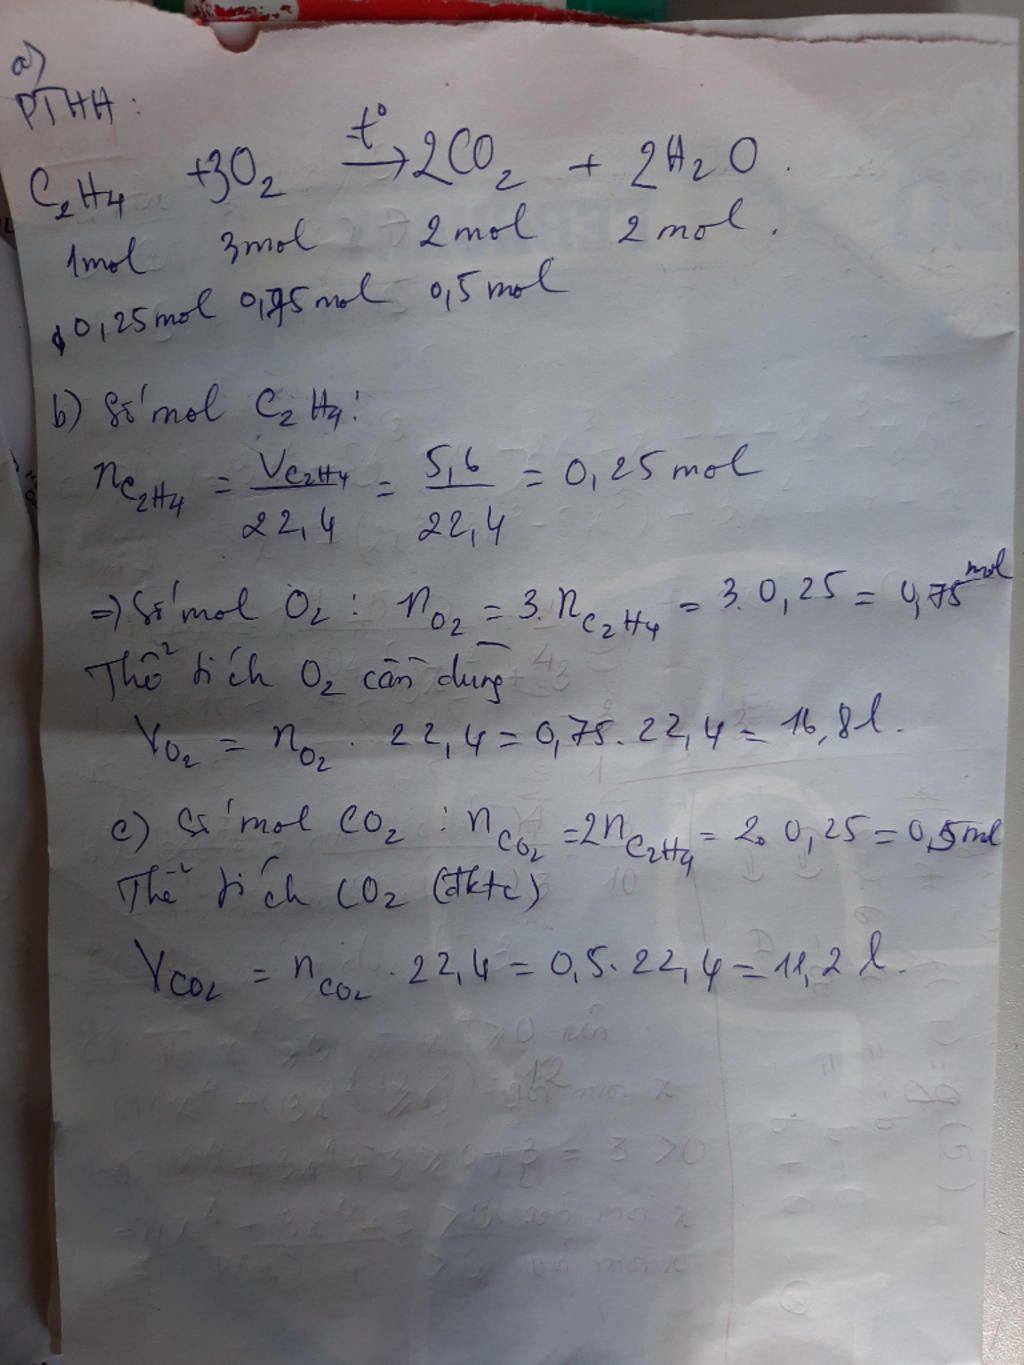 a)
PTHH:
C₂H₄ +3O₂ —t°→ 2CO₂ + 2H₂O.
1mol 3mol 2mol 2mol.
0,25mol 0,75mol 0,5mol
b) Số mol C₂H₄:
n_C₂H₄ = V_C₂H₄/22,4 = 5,6/22,4 = 0,25 mol
=) Số mol O₂: n_O₂ = 3.n_C₂H₄ = 3.0,25 = 0,75 mol
Thể tích O₂ cần dùng
V_O₂ = n_O₂ . 22,4 = 0,75.22,4 = 16,8l.
c) Số mol CO₂ : n_CO₂ =2n_C₂H₄ = 2.0,25 = 0,5 mol
Thể tích CO₂ (đktc)
V_CO₂ = n_CO₂ . 22,4 = 0,5.22,4 = 11,2 l.